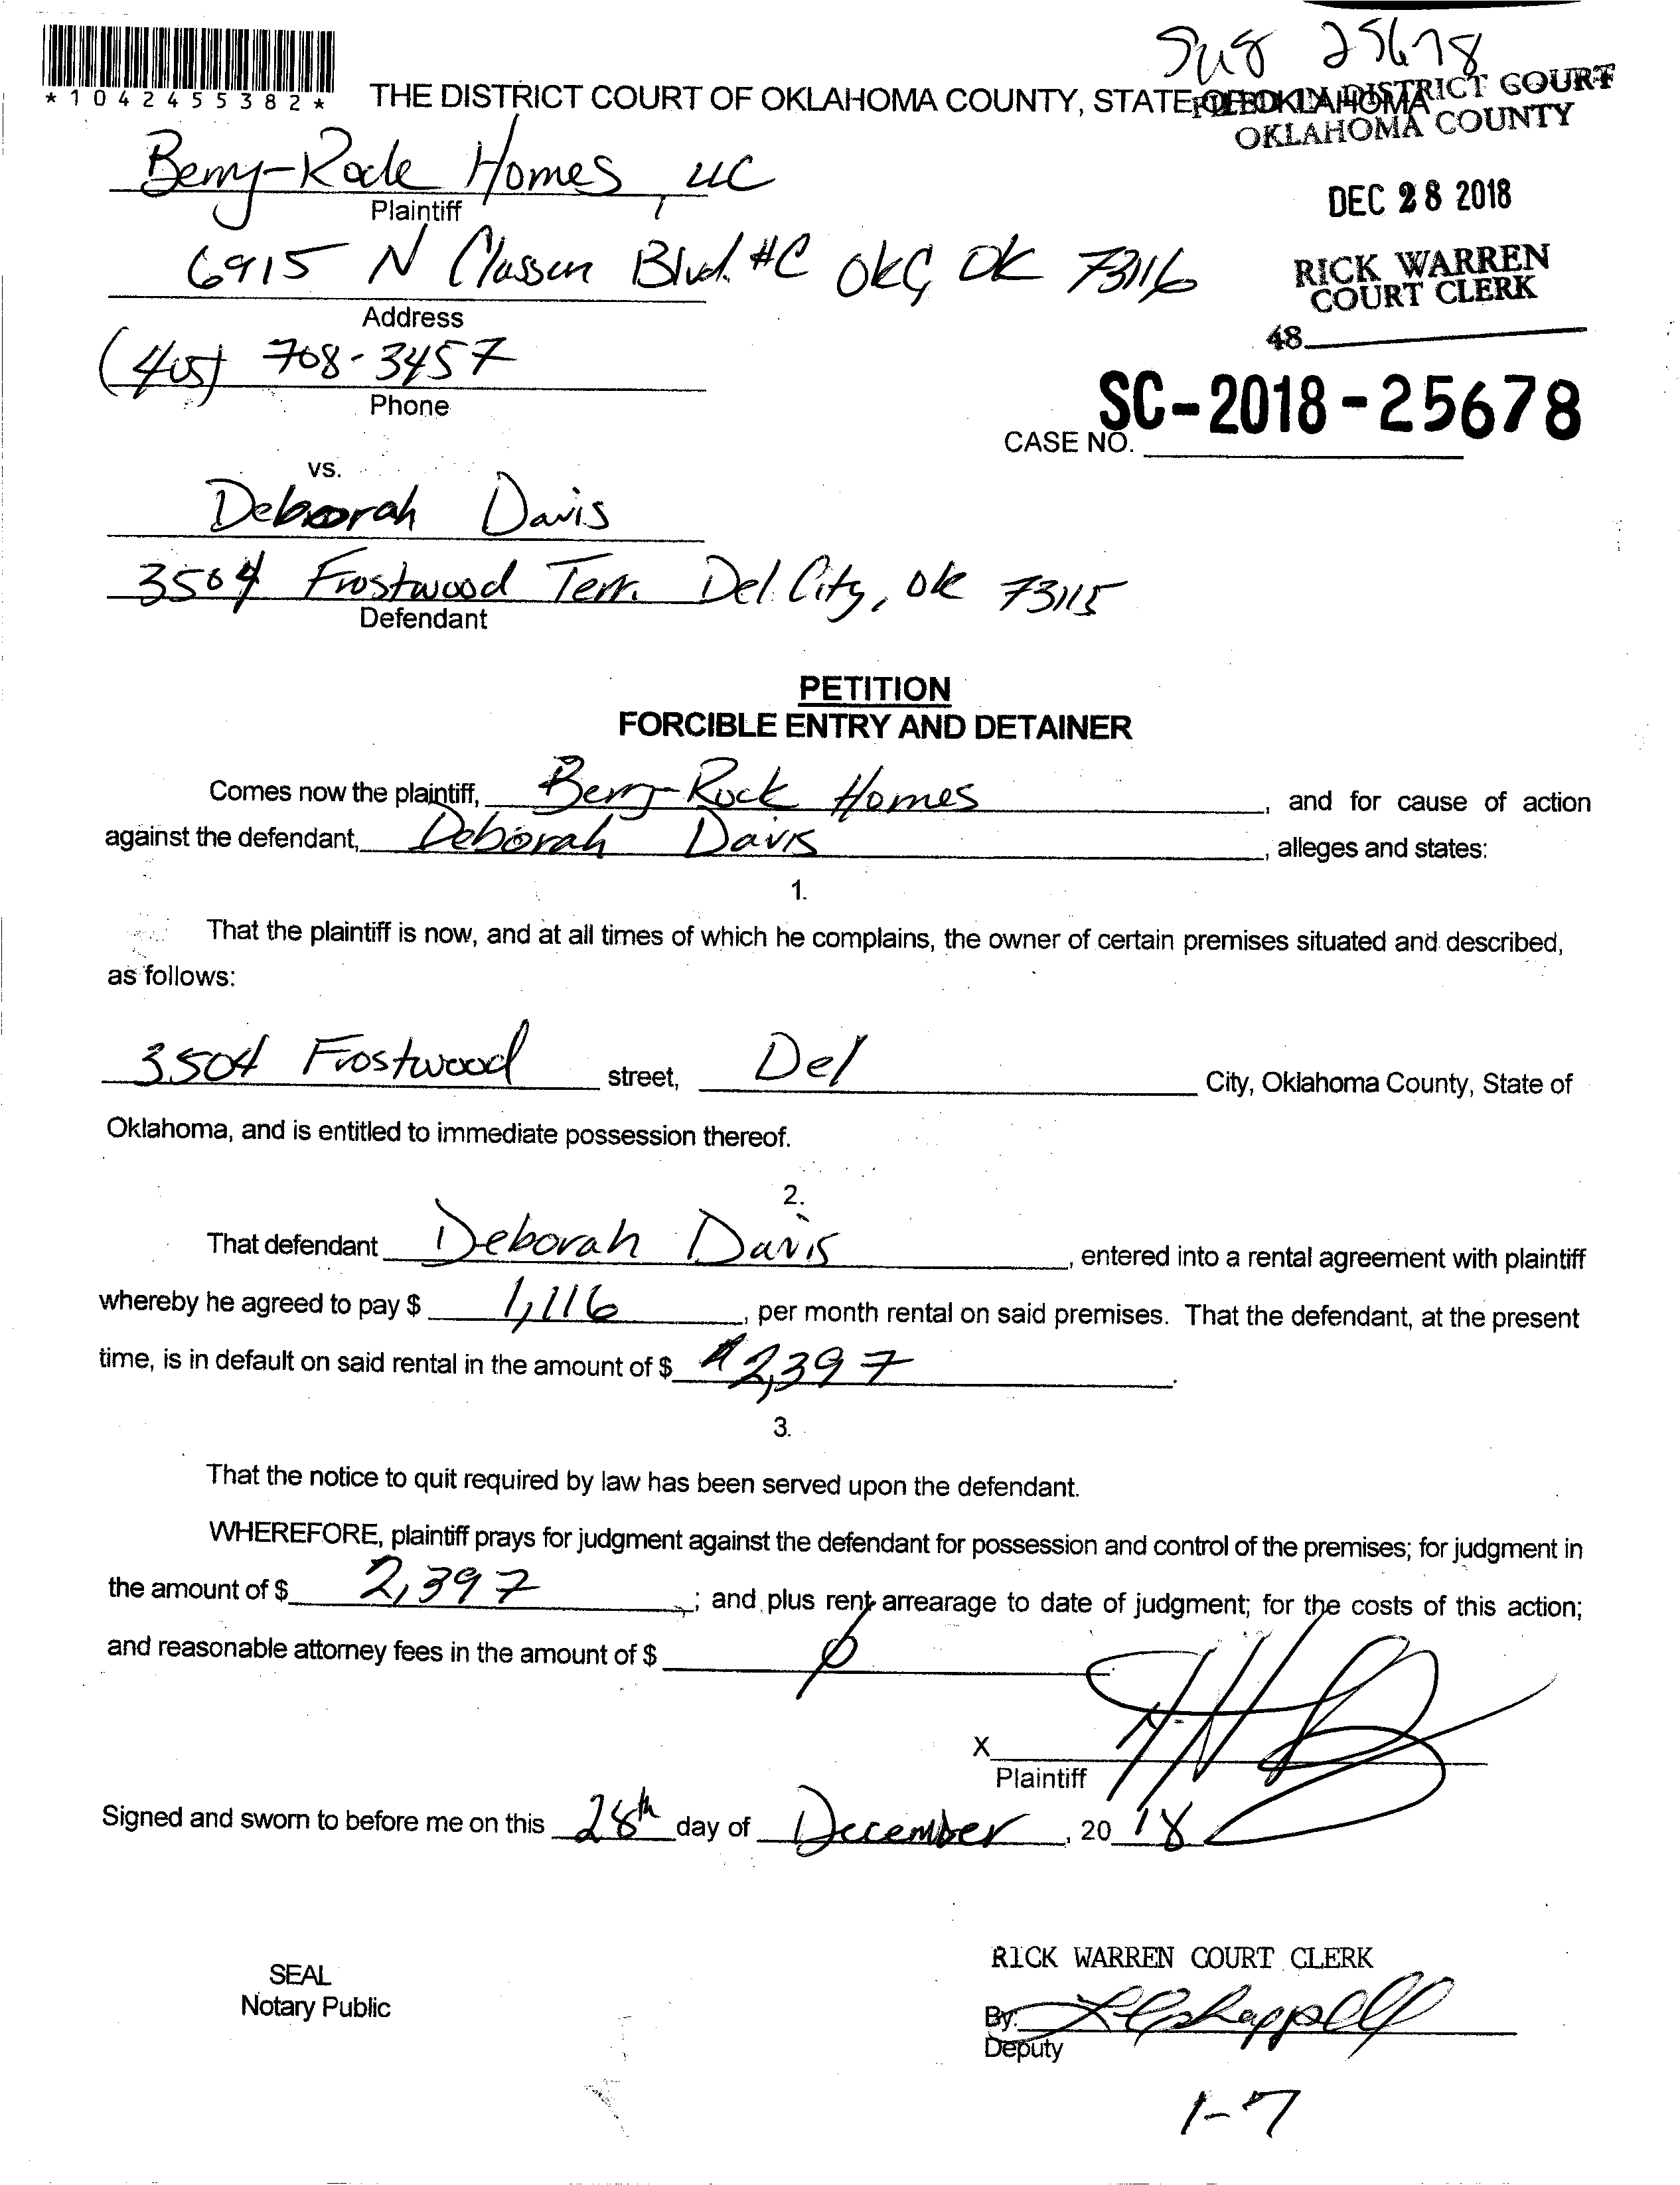 25678
*1042455382*
THE DISTRICT COURT OF OKLAHOMA COUNTY, STATE OF OKLAHOMA
FILED IN DISTRICT COURT
OKLAHOMA COUNTY
Berry-Rock Homes, LLC
Plaintiff
DEC 28 2018
6915 N Classen Blvd. #C OKC, OK 73116
Address
RICK WARREN
COURT CLERK
48
(405) 708-3457
Phone
SC-2018-25678
CASE NO.
vs.
Deborah Davis
3504 Frostwood Terr. Del City, OK 73115
Defendant
PETITION
FORCIBLE ENTRY AND DETAINER
Comes now the plaintiff, Berry-Rock Homes, and for cause of action
against the defendant, Deborah Davis, alleges and states:
1.
That the plaintiff is now, and at all times of which he complains, the owner of certain premises situated and described,
as follows:
3504 Frostwood street, Del City, Oklahoma County, State of
Oklahoma, and is entitled to immediate possession thereof.
2.
That defendant Deborah Davis, entered into a rental agreement with plaintiff
whereby he agreed to pay $ 1,116, per month rental on said premises. That the defendant, at the present
time, is in default on said rental in the amount of $ 2,397.
3.
That the notice to quit required by law has been served upon the defendant.
WHEREFORE, plaintiff prays for judgment against the defendant for possession and control of the premises; for judgment in
the amount of $ 2,397; and plus rent arrearage to date of judgment; for the costs of this action;
and reasonable attorney fees in the amount of $ ∅
X
Plaintiff
Signed and sworn to before me on this 28th day of December, 2018
SEAL
Notary Public
RICK WARREN COURT CLERK
By:
Deputy
1-7